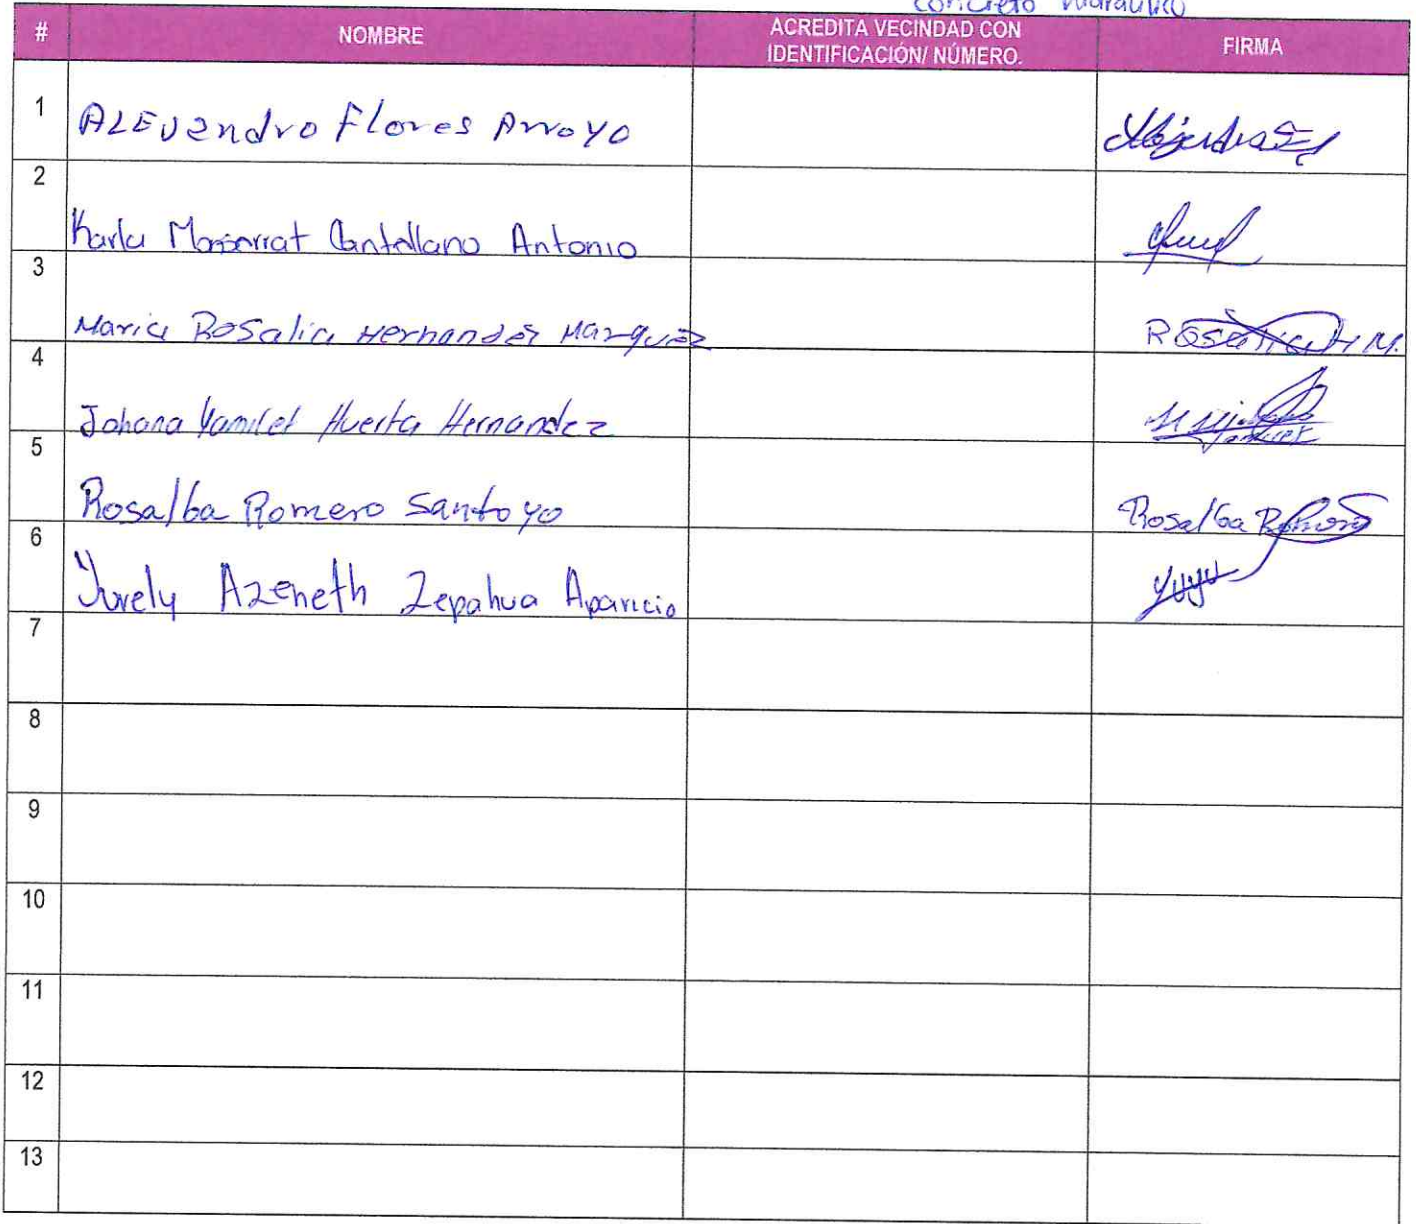 concreto hidráulico
# NOMBRE ACREDITA VECINDAD CON IDENTIFICACIÓN/ NÚMERO. FIRMA
1 ALEJandro Flores Arroyo
2 Karla Monserrat Cantellano Antonio
3 Maria Rosalia Hernandez Marquez Rosalia H M.
4 Johana Yamilet Huerta Hernandez
5 Rosalba Romero Santoyo Rosalba Romero
6 Yurely Azeneth Zepahua Aparicio Yuyu
7
8
9
10
11
12
13